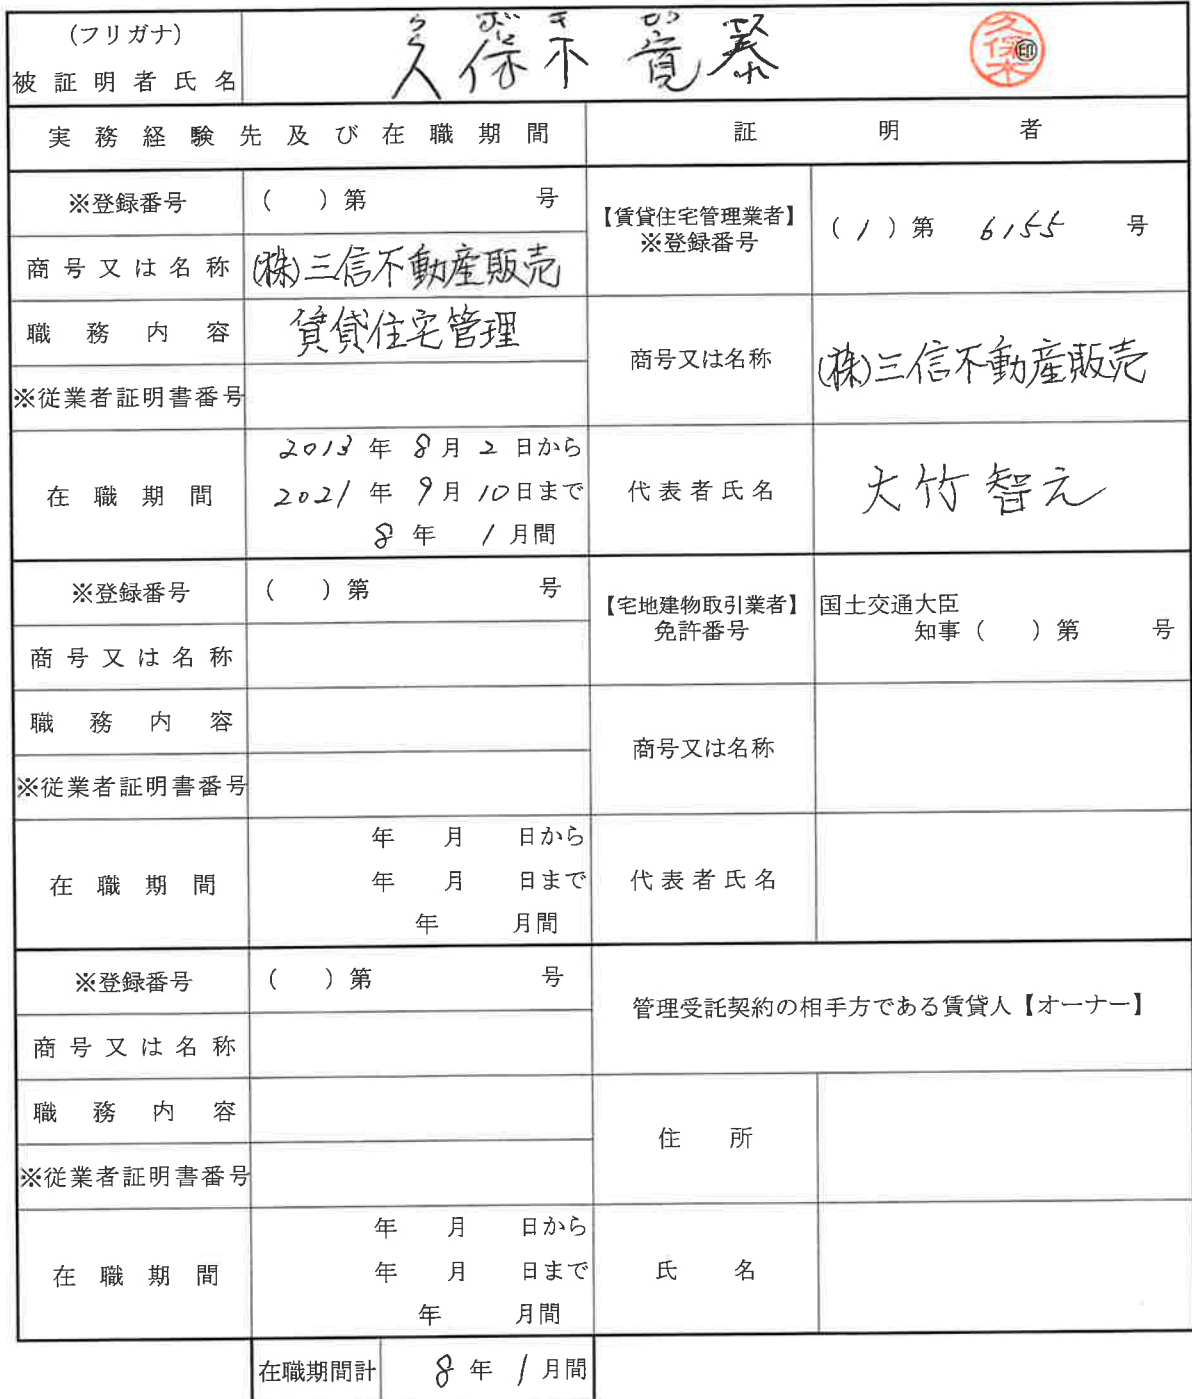 (フリガナ)
被証明者氏名
久保木 寛泰
久保木 ㊞
実務経験先及び在職期間 証明者
※登録番号 ( )第 号
商号又は名称 (株)三信不動産販売
職務内容 賃貸住宅管理
※従業者証明書番号
在職期間
2013年 8月 2日から
2021年 9月 10日まで
8年 1月間
【賃貸住宅管理業者】
※登録番号
(1)第 6155 号
商号又は名称 (株)三信不動産販売
代表者氏名 大竹智元
※登録番号 ( )第 号
商号又は名称
職務内容
※従業者証明書番号
在職期間
年 月 日から
年 月 日まで
年 月間
【宅地建物取引業者】
免許番号
国土交通大臣
知事( )第 号
商号又は名称
代表者氏名
※登録番号 ( )第 号
商号又は名称
職務内容
※従業者証明書番号
在職期間
年 月 日から
年 月 日まで
年 月間
管理受託契約の相手方である賃貸人【オーナー】
住所
氏名
在職期間計 8年 1月間